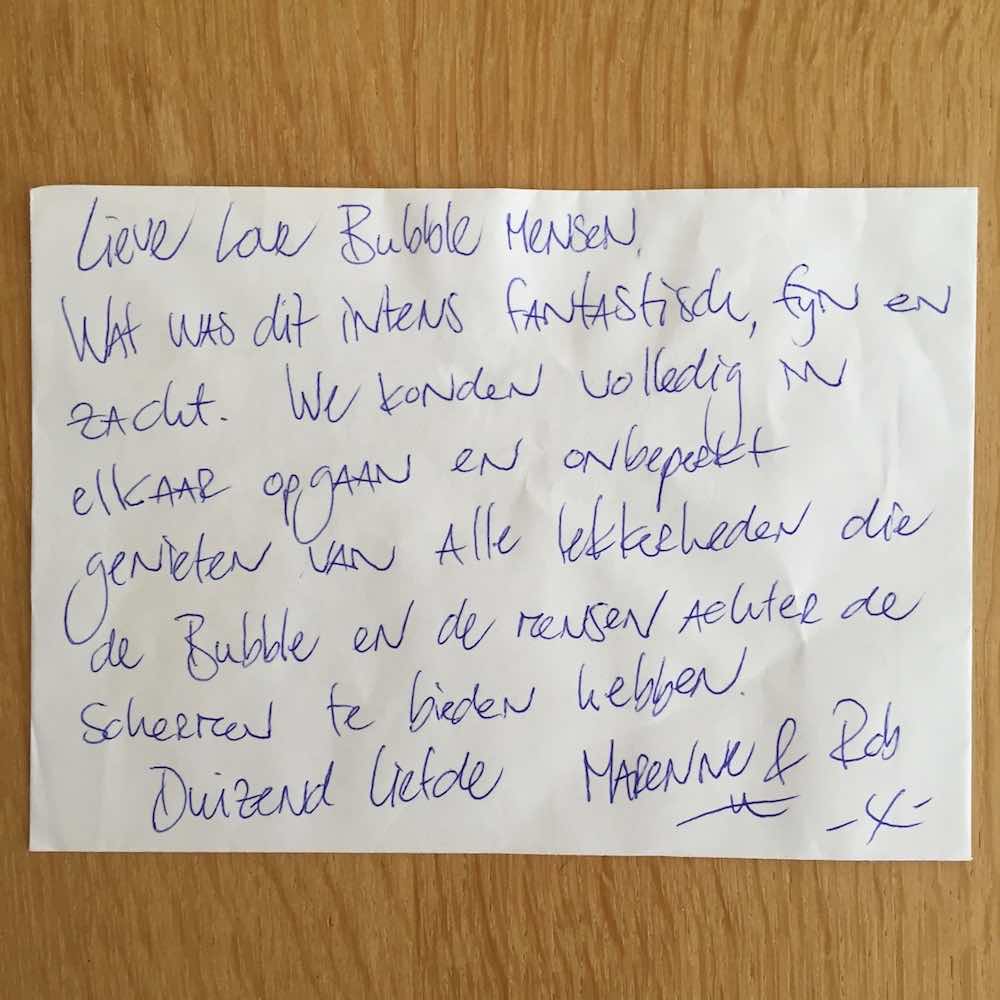 Lieve Love Bubble Mensen,
Wat was dit intens fantastisch, fijn en
zacht. We konden volledig in
elkaar opgaan en onbeperkt
genieten van alle lekkerheden die
de Bubble en de mensen achter de
schermen te bieden hebben.
Duizend liefde Marenne & Rob
-x-